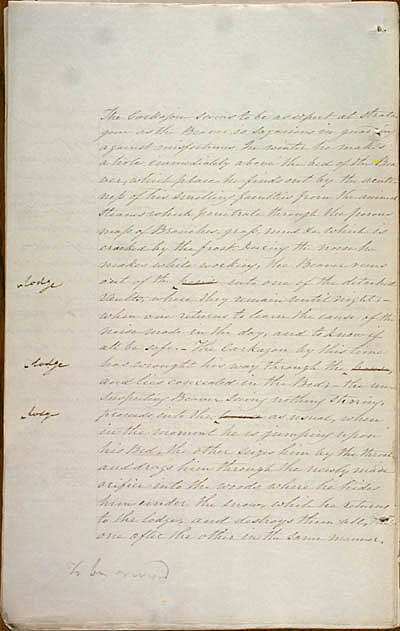 The Carkajou seems to be as expert at strata
gem as the Beaver is sagacious in guarding
against misfortunes. In winter he makes
a hole immediately above the bed of the Bea
ver, which place he finds out by the acute
ness of his smelling faculties from the animal
steams which penetrate through the porous
mass of Branches, grass, mud &c which is
cracked by the frost. During the noise he
makes while working, the Beaver runs
out of the into one of the detached
vaults, where they remain until night -
when one returns to learn the cause of the
noise made in the day, and to know if
all be safe. - The Carkajou by this time
has wrought his way through the
and lies concealed in the Bed - the un
suspecting Beaver seeing nothing stirring,
proceeds into the as usual, when
in the moment he is jumping upon
his Bed, the other seizes him by the throat
and drags him through the newly made
orifice into the woods where he hides
him under the snow, whilst he returns
to the lodge, and destroys them all,
one after the other in the same manner.
lodge
lodge
lodge
to be